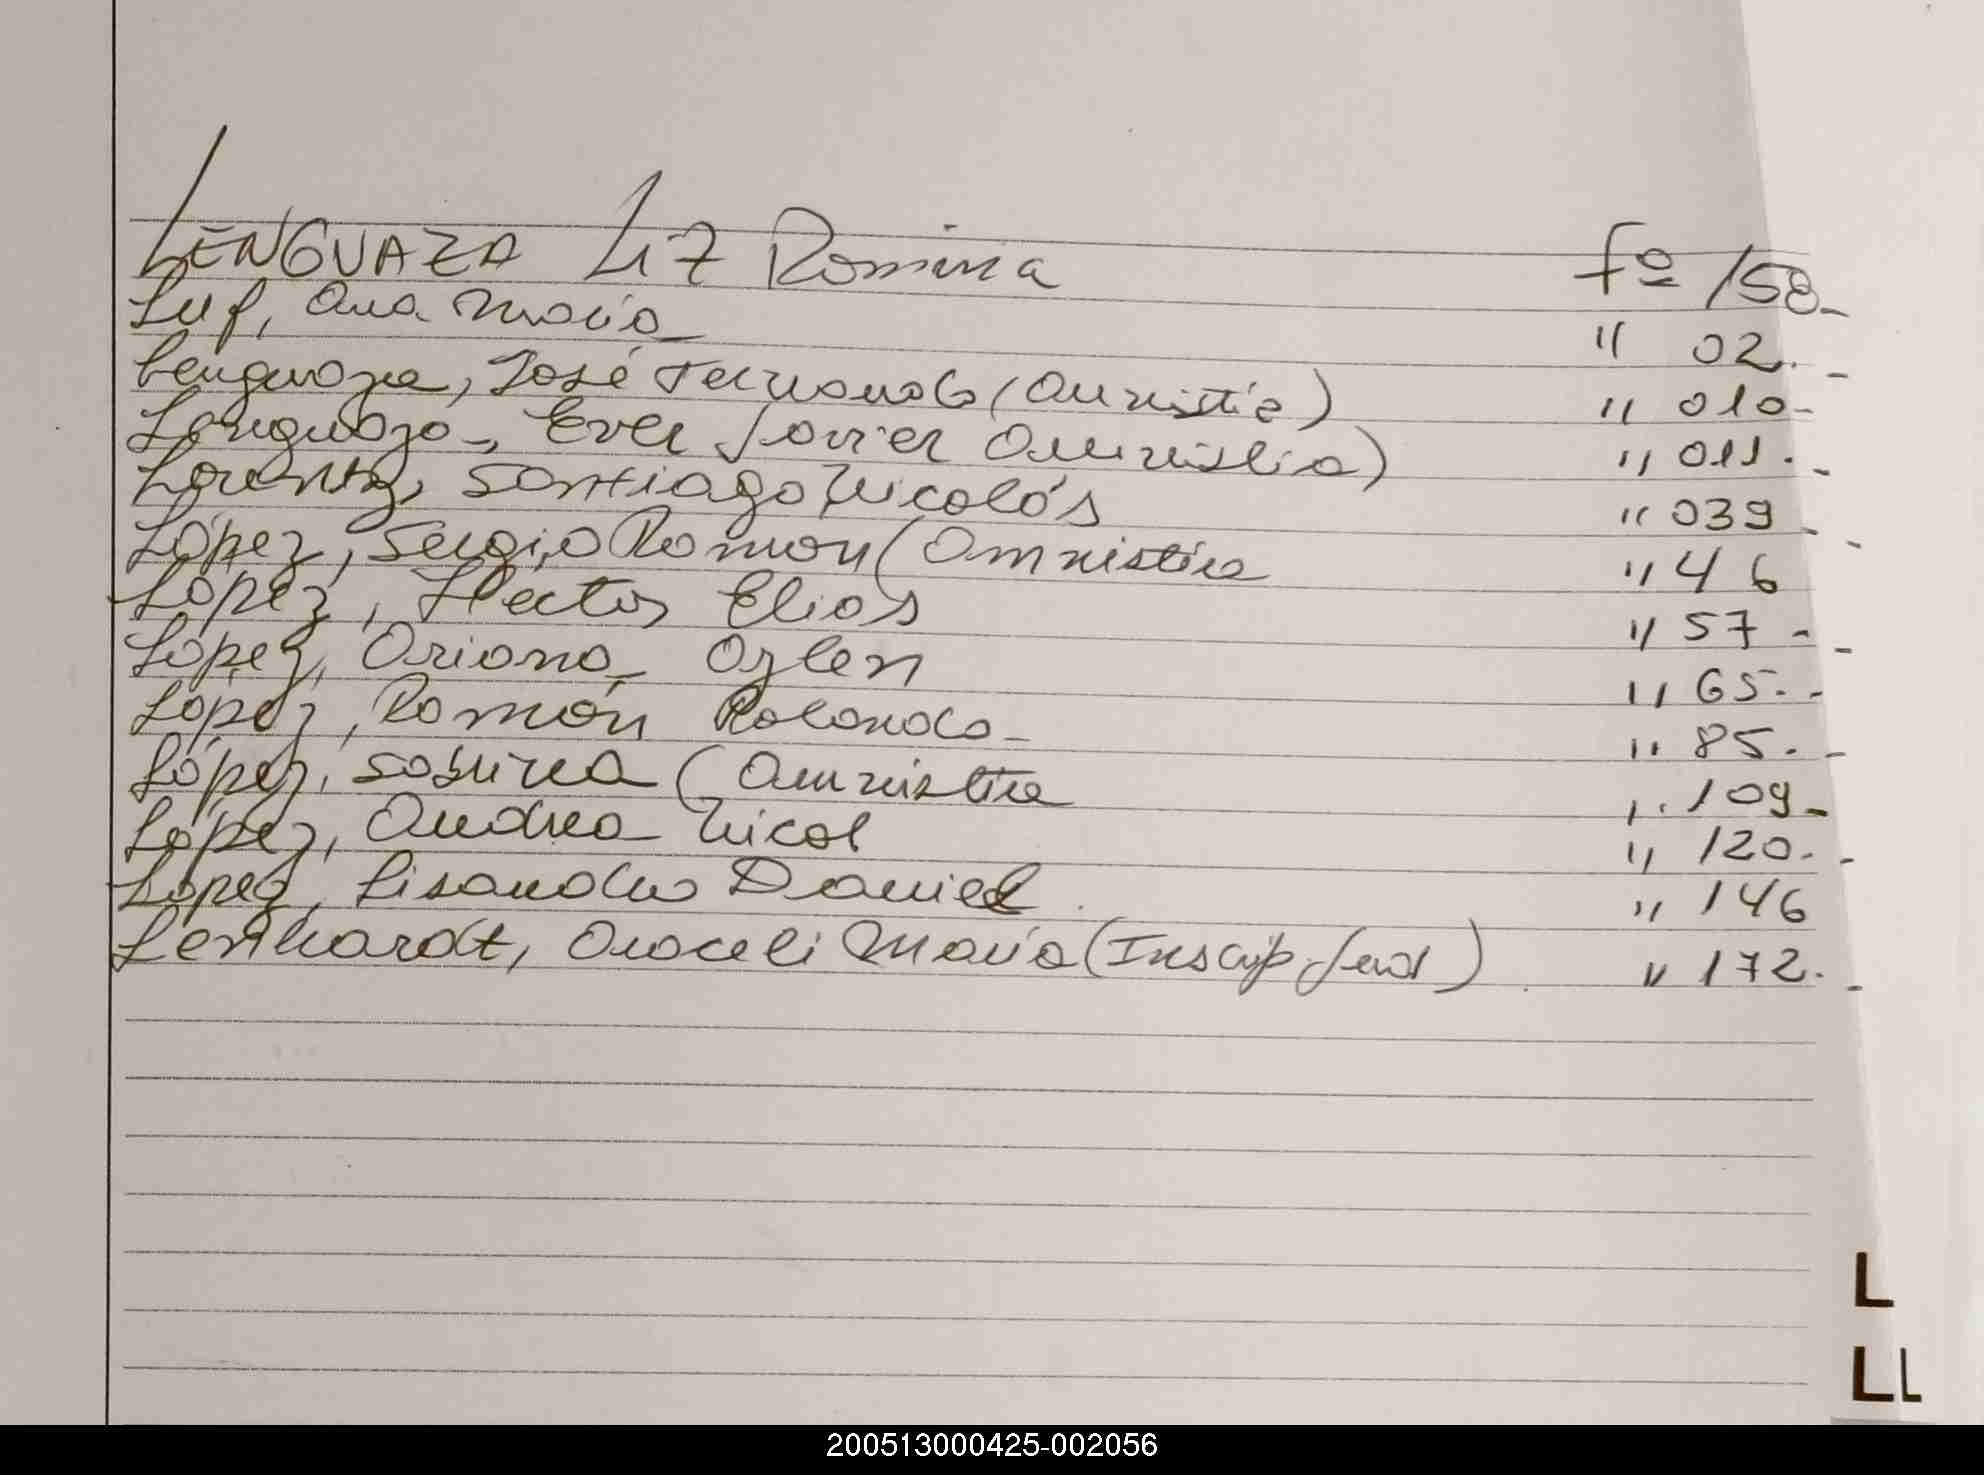 LENGUAZA Liz Romina fº 158.-
Luf, Ana María " 02.-
Lenguaza, José Fernando (Amnistía) " 010-
Lenguaza, Ever Javier Amnistía) " 011.-
Lorentz, Santiago Nicolás " 039-
López, Sergio Ramon (Amnistia " 46
López, Hector Elias " 57-
López, Oriana Ozlen " 65.-
López, Ramón Rolando " 85.-
López, Sabrina (Amnistia " 109-
López, Andrea Nicol " 120.-
López, Lisandro Daniel " 146
Lenhardt, Araceli María (Inscrip. Jud) " 172.-
L
LL
200513000425-002056